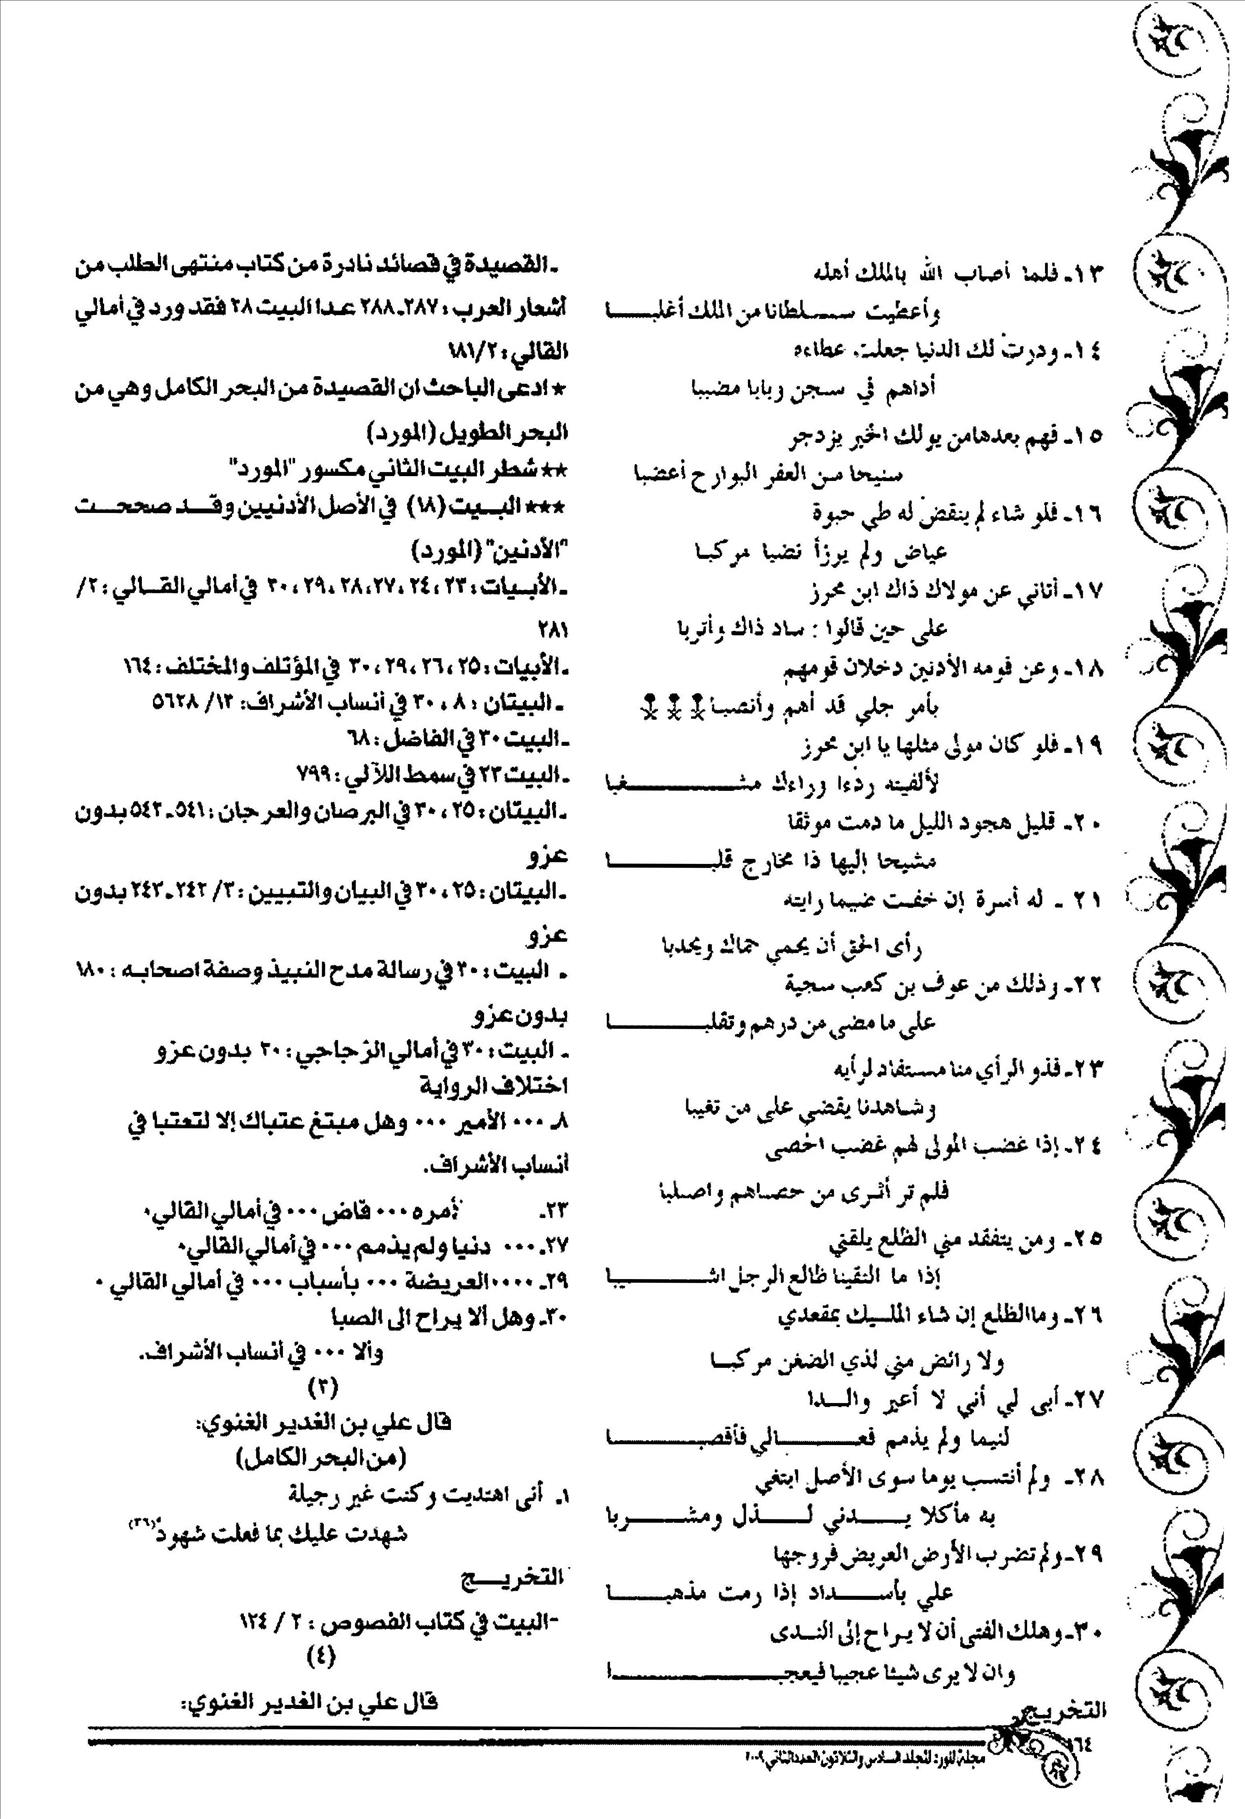 ١٣ـ فلما أصاب الله بالملك أهله
وأعطيت سلطانا من الملك أغلبا
١٤ـ ودرت لك الدنيا جعلت عطاءه
أداهم في سجن وبابا مضببا
١٥ـ فهم بعدهامن يولك الخبر يزدجر
سنيحا من العفر البوارح أعضبا
١٦ـ فلو شاء لم ينقض له طي حبوة
عياض ولم يرزأ نضيا مركبا
١٧ـ أتاني عن مولاك ذاك ابن محرز
على حين قالوا : ساد ذاك وأتربا
١٨ـ وعن قومه الأدنين دخلان قومهم
بأمر جلي قد أهم وأنصبا
١٩ـ فلو كان مولى مثلها يا ابن محرز
لألفيته ردءا وراءك مشغبا
٢٠ـ قليل هجود الليل ما دمت موثقا
مشيحا إليها ذا مخارج قلبا
٢١ ـ له أسرة إن خفت ضيما رايته
رأى الحق أن يحمي حماك ويحدبا
٢٢ـ وذلك من عوف بن كعب سجية
على ما مضى من درهم وتقلبا
٢٣ـ فذو الرأي منا مستفاد لرأيه
وشاهدنا يقضي على من تغيبا
٢٤ـ إذا غضب المولى لهم غضب الحصى
فلم تر أثرى من حصاهم واصلبا
٢٥ـ ومن يتفقد مني الظلع يلقني
إذا ما التقينا ظالع الرجل اشيبا
٢٦ـ وماالظلع إن شاء المليك بمقعدي
ولا رائض مني لذي الضغن مركبا
٢٧ـ أبى لي أني لا أعير والدا
لنيما ولم يذمم فعالي فأقصبا
٢٨ـ ولم أنتسب يوما سوى الأصل ابتغي
به مأكلا يدني لذل ومشربا
٢٩ـ ولم تضرب الأرض العريض فروجها
علي بأسداد إذا رمت مذهبا
٣٠ـ وهلك الفتى أن لا يراح إلى الندى
وان لا يرى شيئا عجيبا فيعجبا
التخريج
ـ القصيدة في قصائد نادرة من كتاب منتهى الطلب من
أشعار العرب : ٢٨٧ـ ٢٨٨ عدا البيت ٢٨ فقد ورد في أمالي
القالي : ٢/ ١٨١
* ادعى الباحث ان القصيدة من البحر الكامل وهي من
البحر الطويل (المورد)
** شطر البيت الثاني مكسور "المورد"
*** البيت (١٨) في الأصل الأدنيين وقد صححت
"الأدنين" (المورد)
ـ الأبيات : ٢٣ ، ٢٤ ،٢٧ ،٢٨ ،٢٩ ، ٣٠ في أمالي القالي : ٢/
٢٨١
ـ الأبيات : ٢٥ ، ٢٦ ، ٢٩ ، ٣٠ في المؤتلف والمختلف : ١٦٤
ـ البيتان : ٨ ، ٣٠ في أنساب الأشراف: ١٣/ ٥٦٢٨
ـ البيت ٣٠ في الفاضل : ٦٨
ـ البيت ٢٣ في سمط اللآلي : ٧٩٩
ـ البيتان : ٢٥ ، ٣٠ في البرصان والعرجان : ٥٤١ـ ٥٤٢ بدون
عزو
ـ البيتان : ٢٥ ، ٣٠ في البيان والتبيين : ٣/ ٢٤٢ـ ٢٤٣ بدون
عزو
ـ البيت : ٣٠ في رسالة مدح النبيذ وصفة اصحابه : ١٨٠
بدون عزو
ـ البيت : ٣٠ في أمالي الزجاجي : ٣٠ بدون عزو
اختلاف الرواية
٨ـ ... الأمير ... وهل مبتغ عتباك إلا لتعتبا في
أنساب الأشراف.
٢٣ـ أمره ... قاض ... في أمالي القالي.
٢٧ـ ... دنيا ولم يذمم ... في أمالي القالي.
٢٩ـ .... العريضة ... بأسباب ... في أمالي القالي .
٣٠ـ وهل ألا يراح الى الصبا
وألا ... في أنساب الأشراف.
(٣)
قال علي بن الغدير الغنوي:
(من البحر الكامل)
١ـ أنى اهتديت وكنت غير رجيلة
شهدت عليك بما فعلت شهود(٣٦)
التخريج
-البيت في كتاب الفصوص : ٢ / ١٢٤
(٤)
قال علي بن الغدير الغنوي:
١٦٤
مجلة المورد المجلد السادس والثلاثون العدد الثاني ٢٠٠٩